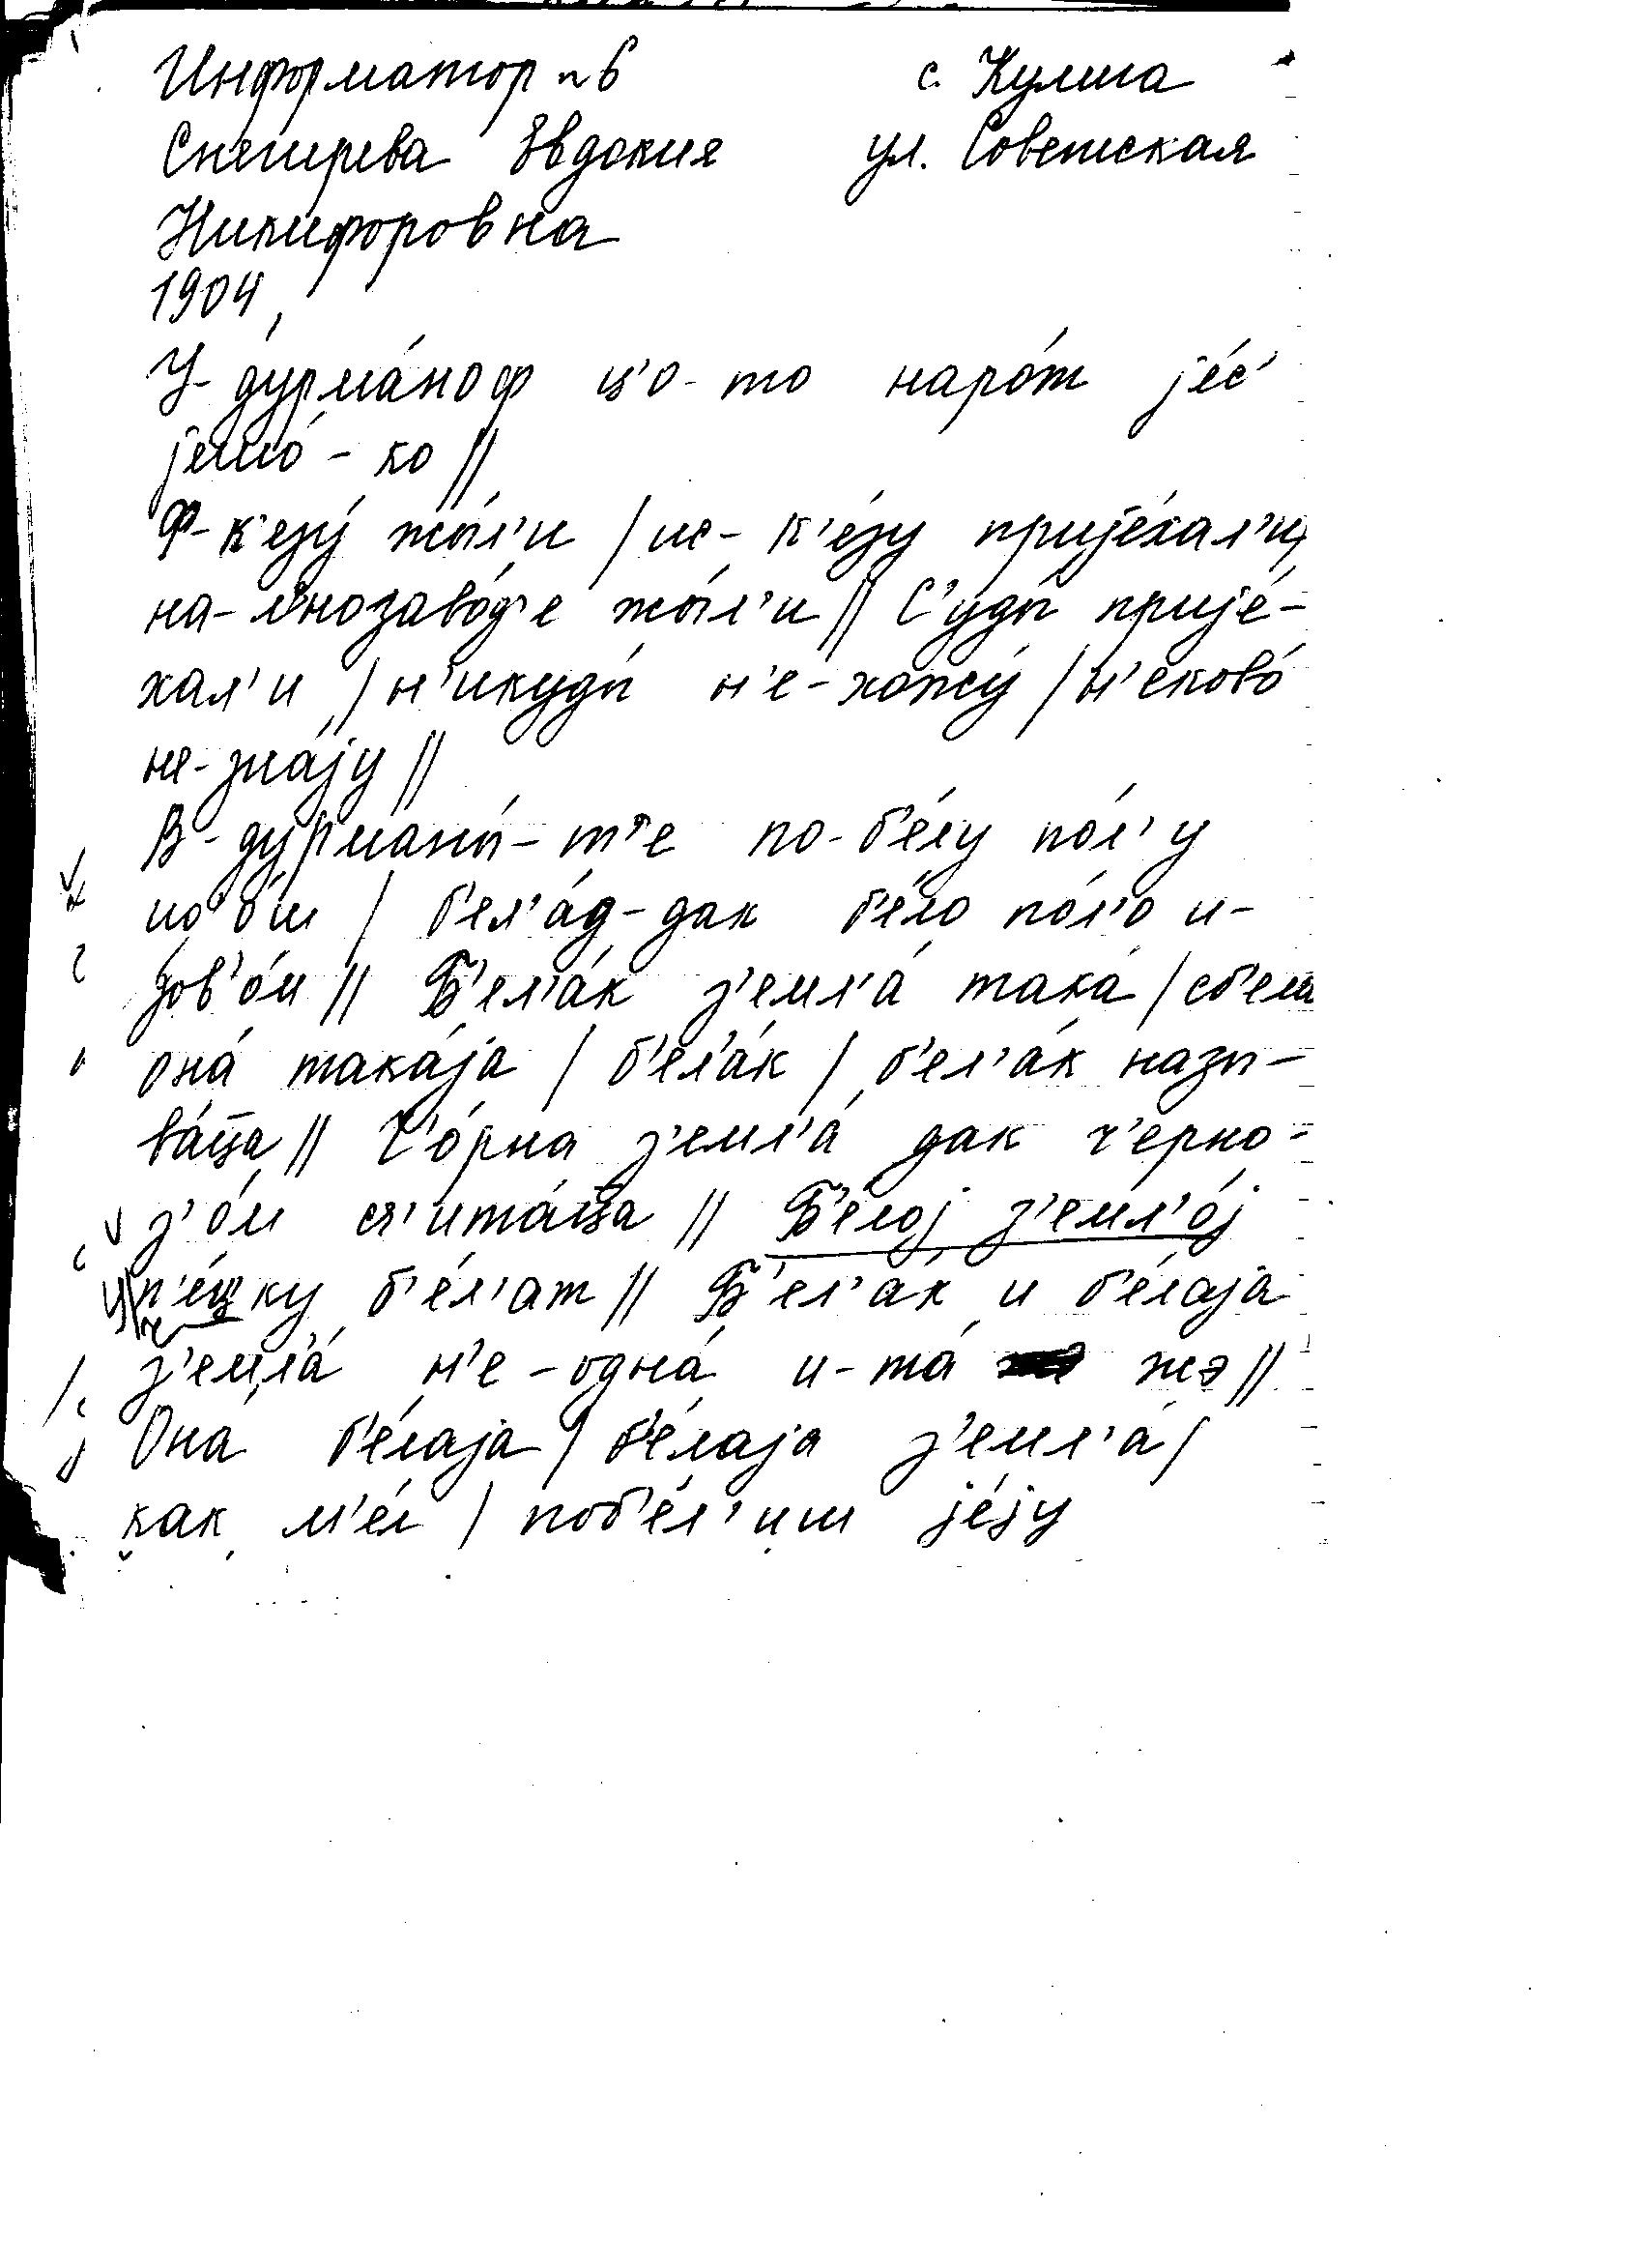 Информатор №6 с. Кулига
Снегирева Евдокия ул. Советская
Никифоровна
1904
У-ду́рма́ноф ц'о-то наро́т је́с'
јешшо́-ко //
Ф-к'езу́ жы́л'и / ис-к'е́зу прије́хал'и,
на-л'нозаво́д'е жы́л'и // С'уды́ прије́-
хал'и / н'икуды́ н'е-хожу́ / н'еково́
не-зна́ју //
В-дурманы́-т'е по-б'е́лу по́л'у
/ б'ел'а́д-дак б'е́ло по́л'о и-
зов'о́м // Б'ел'а́к з'емл'а́ така́ / сб'ела
она́ така́ја / б'ел'а́к / б'ел'а́к назы-
ва́ца // Ч'о́рна з'емл'а́ дак ч'ерно-
з'о́м сч'ита́ца // Б'е́лој з'емл'о́ј
п'е́цку б'е́л'ат // Б'ел'а́к и б'е́лаја
з'емл'а́ н'е-одна́ и-та́ жэ //
Она́ б'е́лаја / б'е́лаја з'емл'а́ /
как м'е́л / поб'е́л'иш је́ју